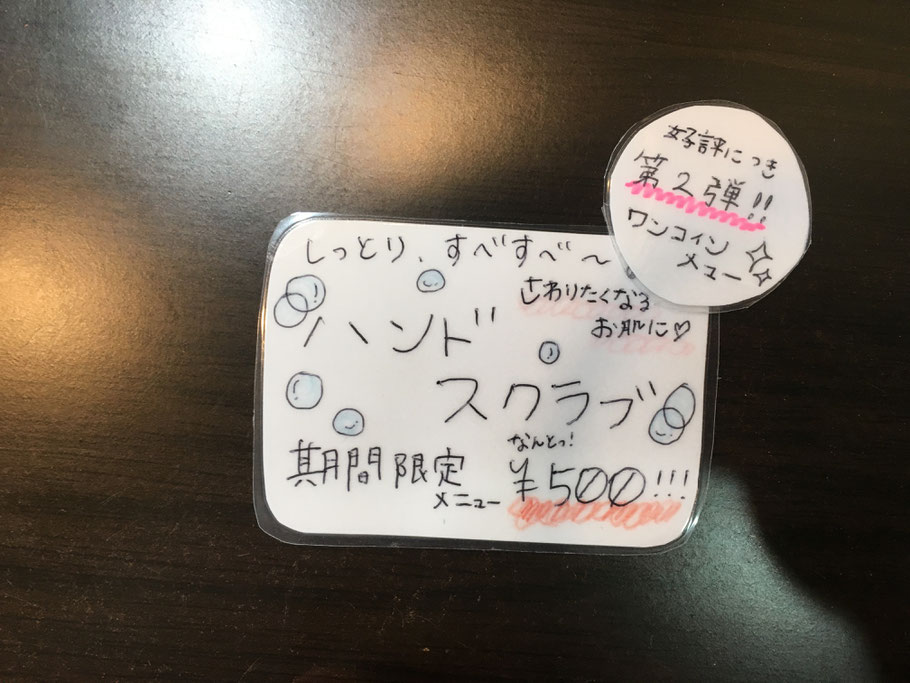 好評につき
第2弾!!
ワンコイン
メニュー
しっとり、すべすべ〜
さわりたくなる
お肌に♡
ハンド
スクラブ
なんとっ!
期間限定
メニュー
¥500!!!